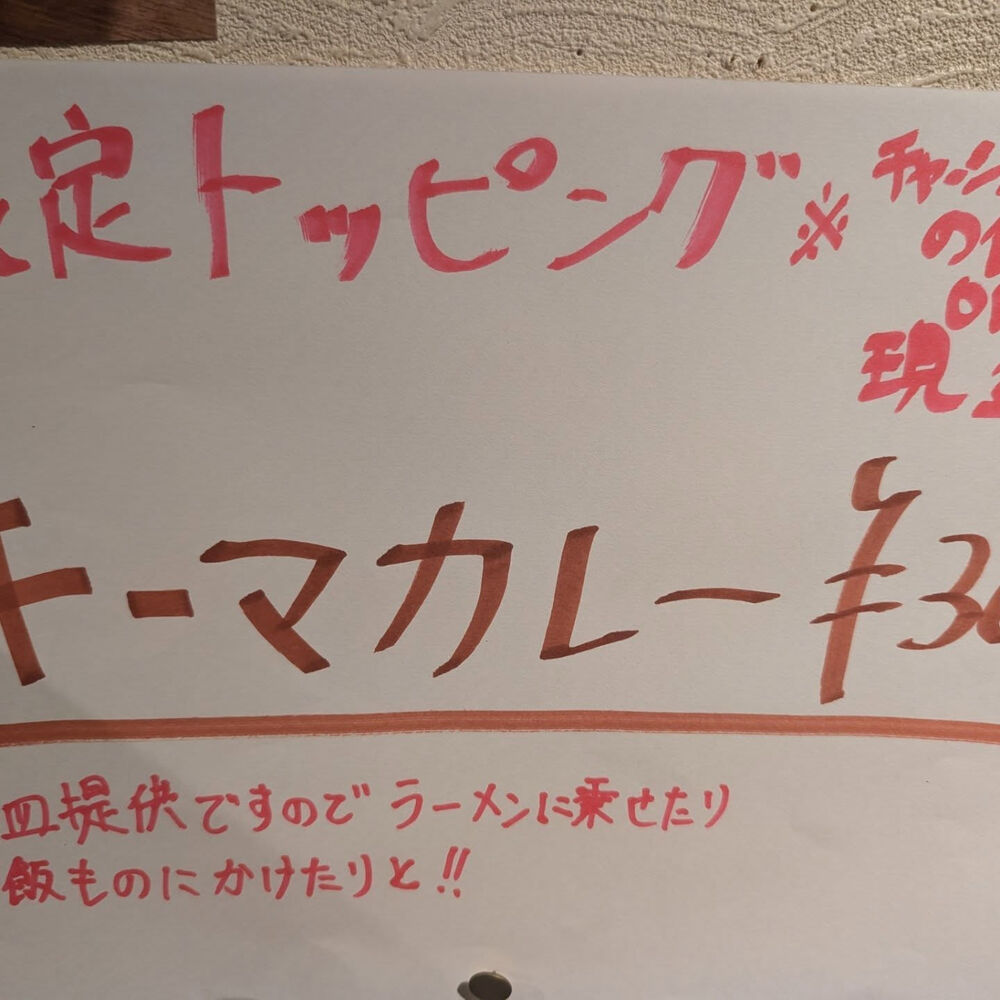 定トッピング※
チャーシ
の
現
キーマカレー ¥30
皿提供ですのでラーメンに乗せたり
飯ものにかけたりと!!